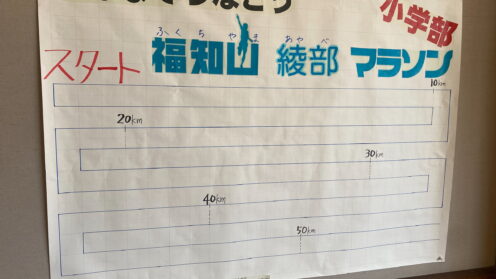 つなごう
小学部
ふくちやま あやべ
スタート 福知山 綾部 マラソン
10km
20km
30km
40km
50km